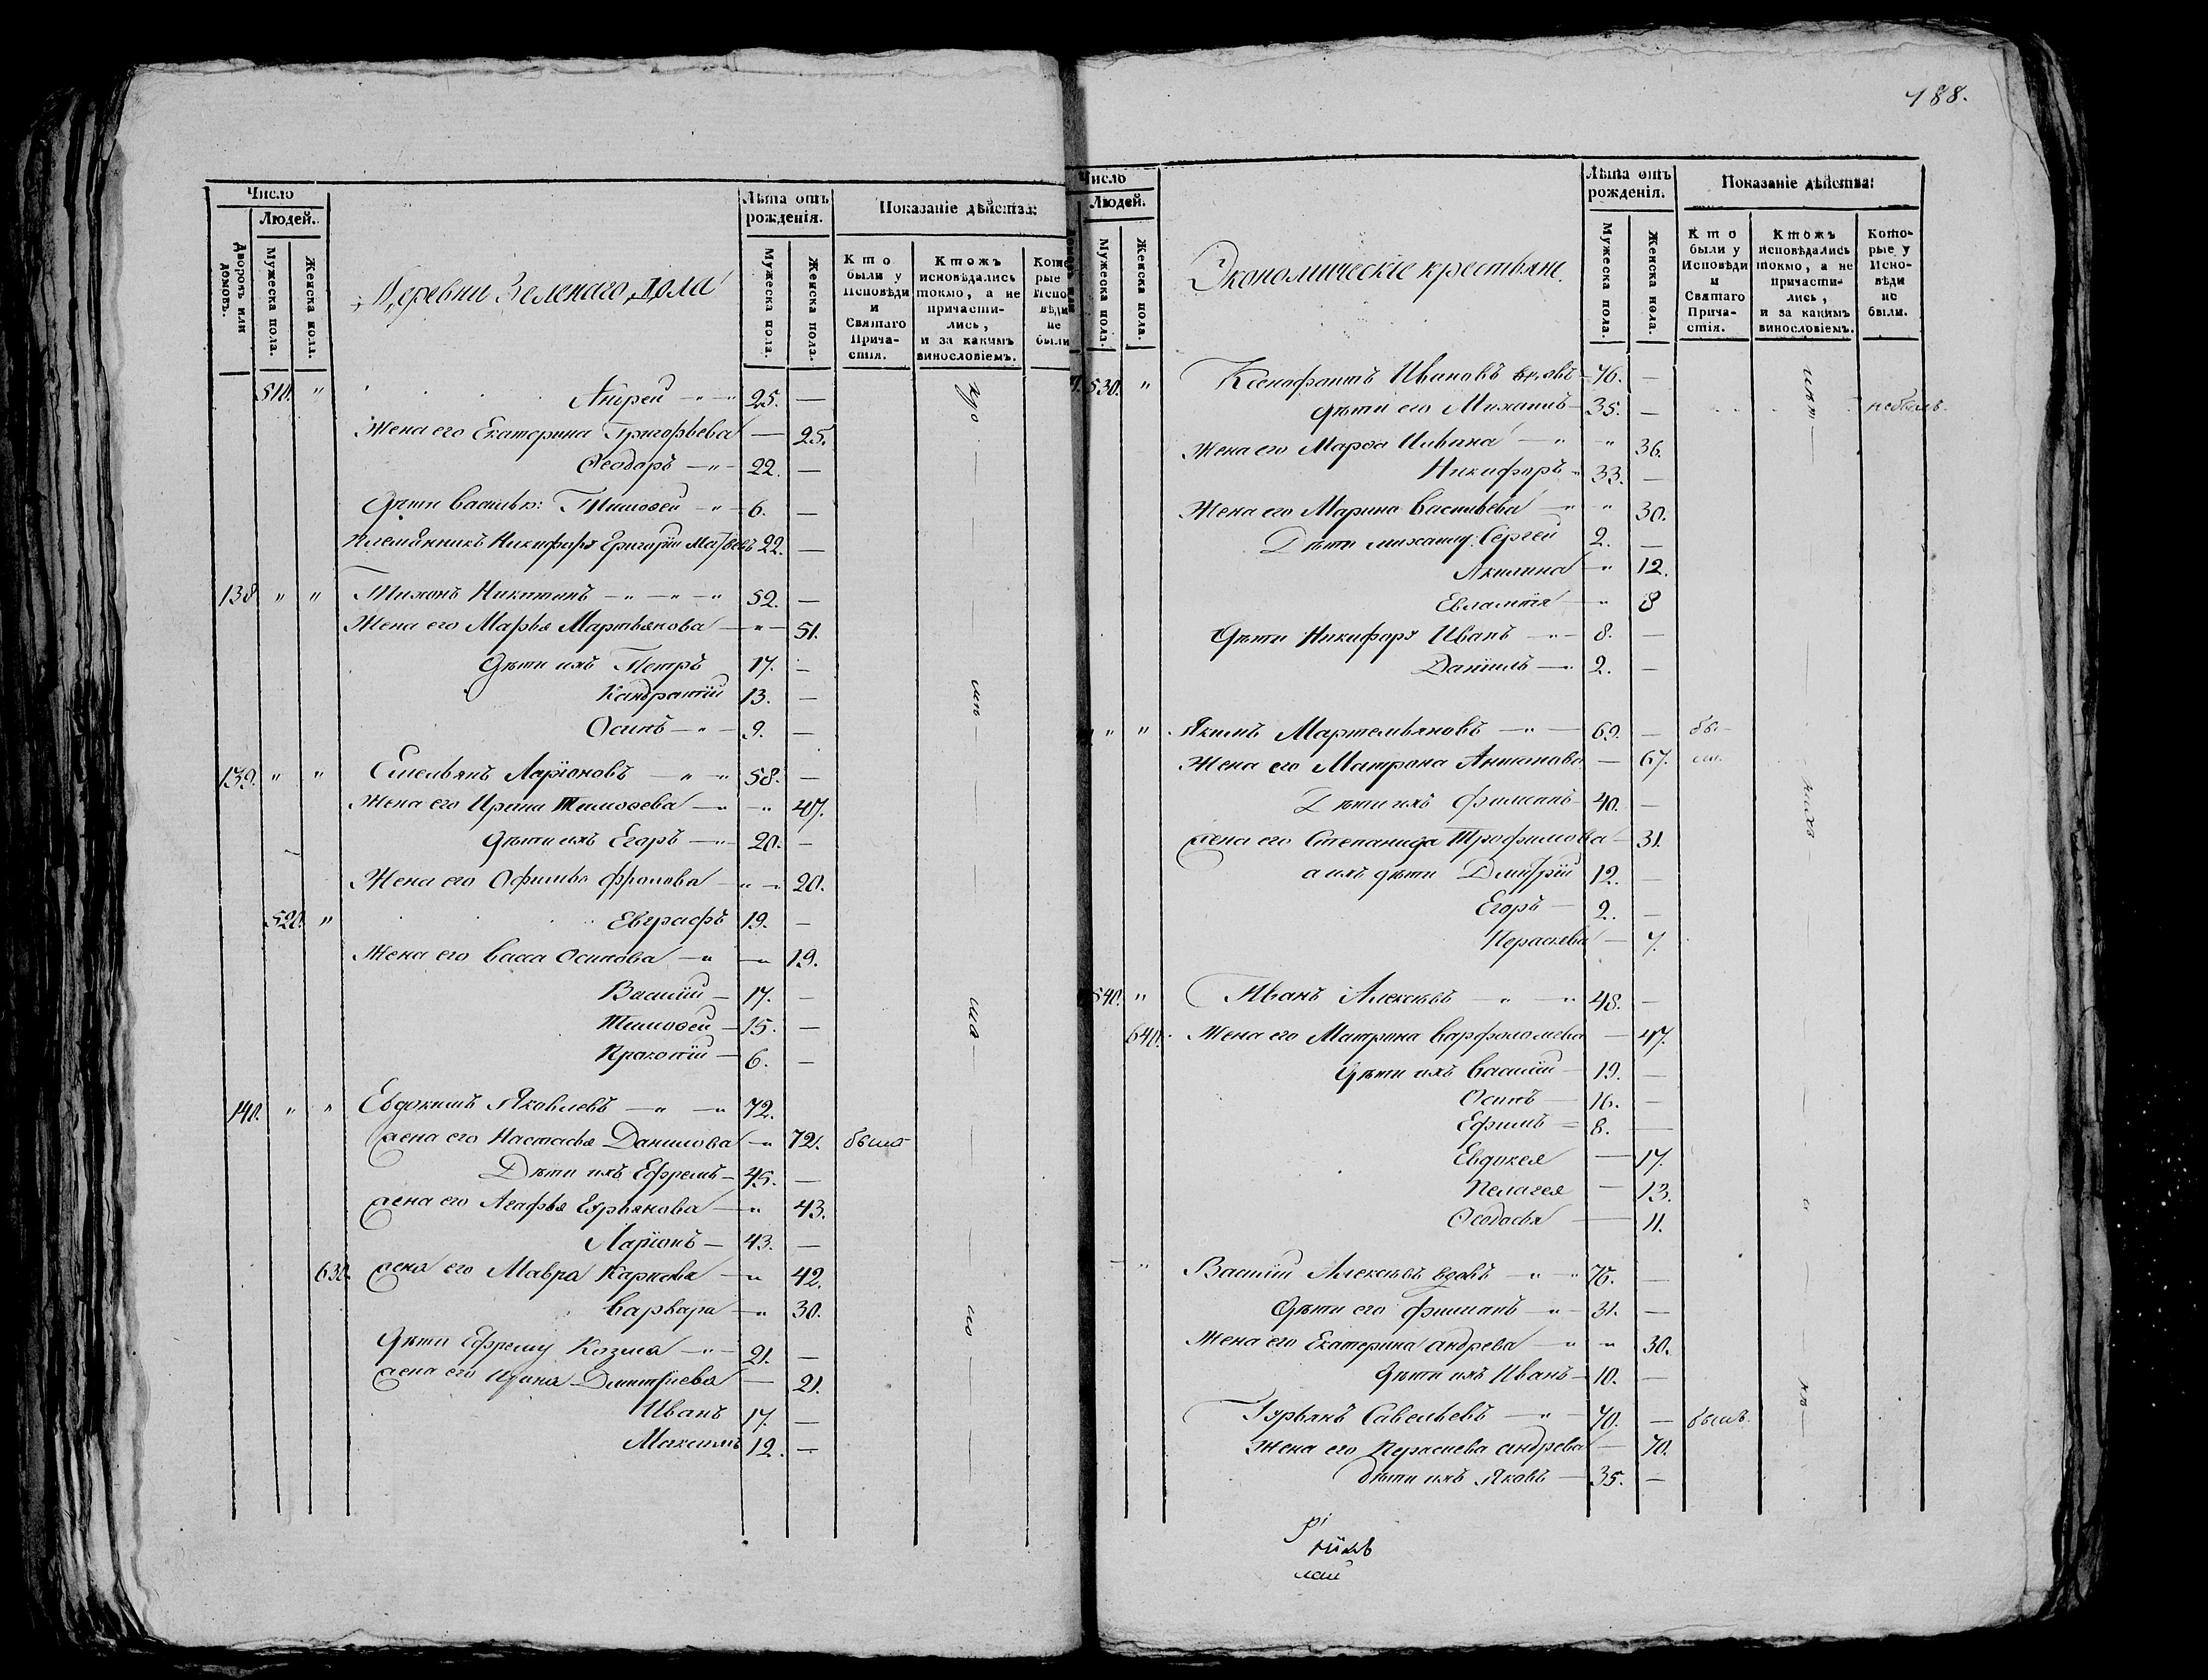 Число
Людей.
Дворовъ или домовъ.
Мужеска пола.
Женска пола.
Деревни Зеленаго дола
Лѣта отъ рожденія.
Мужеска пола.
Женска пола.
Показаніе дѣйства:
Кто были у Исповѣди и Святаго Прича-стія.
Ктожъ исповѣдались токмо, а не причасти-лись, и за какимъ винословіемъ.
Кото рые Испо вѣди не были
510. " Андрей 25. —
Жена его Екатерина Григорьева — 25.
Ѳеодоръ 22. —
Дѣти Василья: Тимоѳей 6. —
племянникъ Никифора Григорій Матвеевъ 22. —
138 " " Тихонъ Никитинъ 52. —
Жена его Марья Мартьянова — 51.
Дѣти ихъ Петръ 17. —
Кандратій 13. —
Осипъ 9. —
139. " " Емельянъ Ларіоновъ 58. —
Жена его Ирина Тимоѳеева 47.
Дѣти ихъ Егоръ 20. —
Жена его Офимья Фролова 20.
520. " Евграфъ 19. —
Жена его Васса Осипова 19.
Василій 17. —
Тимоѳей 15. —
Прокопій 6. —
140. " " Евдокимъ Яковлевъ 72.
жена его Настасья Данилова 72. была
Дѣти ихъ Ефремъ 45. —
жена его Агафья Гурьянова 43.
Ларіонъ 43. —
630. жена его Мавра Карпова 42.
Варвара 30.
Дѣти Ефрему Козма 21. —
жена его Ирина Дмитріева — 21.
Иванъ 17. —
Максимъ 12. —
188.
Число
Людей.
Мужеска пола.
Женска пола.
Экономическіе крестьяне.
Лѣта отъ рожденія.
Мужеска пола.
Женска пола.
Показаніе дѣйства:
Кто были у Исповѣди и Святаго Прича-стія.
Ктожъ исповѣдались токмо, а не причасти-лись, и за какимъ винословіемъ.
Кото-рые у Испо-вѣди не были.
530. " Ксенофонтъ Ивановъ вдовъ 76. —
Дѣти его Михаилъ 35. — небылъ.
Жена его Марѳа Ильина " 36.
Никифоръ 33. —
Жена его Марина Васильева " 30.
Дѣти михаилу Сергей 2. —
Акилина " 12.
Евлампія " 8
Дѣти Никифора Иванъ 8. —
Даніилъ 2. —
" " Якимъ Мартемьяновъ 69. — бы-
Жена его Матрона Антонова — 67. ли.
Дѣти ихъ Филипъ 40. —
жена его Степанида Трофимова 31.
а ихъ дѣти Дмитрій 12. —
Егоръ 2. —
Пераскева — 7.
540. " Иванъ Алексѣевъ 48. —
640. Жена его Матрона Варфоломеева — 47.
Дѣти ихъ Василій 19. —
Осипъ 16. —
Ефимъ 8. —
Евдокея — 17.
Пелагея — 13.
Ѳеодосья — 11.
" Василій Алексѣевъ вдовъ 75. —
Дѣти его Филипъ 31. —
Жена его Екатерина андреева " 30.
Дѣти ихъ Иванъ 10. —
Гурьянъ Савельевъ 70. — былъ.
Жена его Пераскева андреева — 70.
дѣти ихъ Яковъ 35. —